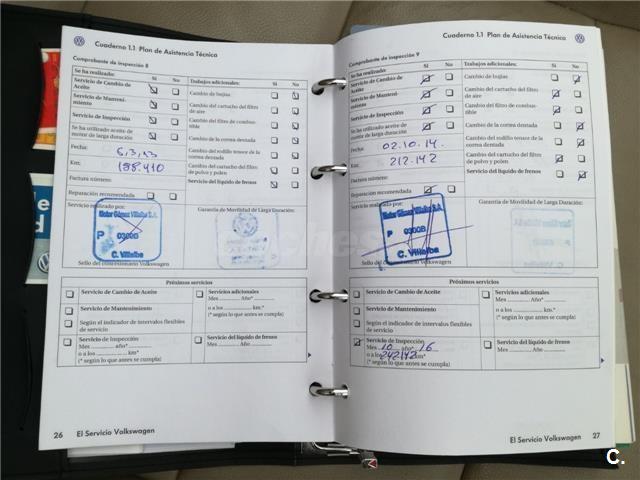 Cuaderno 1.1 Plan de Asistencia Técnica
Comprobante de inspección 8
Se ha realizado: Sí No
Servicio de Cambio de
Aceite
Servicio de Manteni-
miento
Servicio de Inspección
Se ha utilizado aceite de
motor de larga duración
Fecha: 6.3.13
Km: 188.410
Factura número:
Reparación recomendada
Trabajos adicionales: Sí No
Cambio de bujías
Cambio del cartucho del filtro
de aire
Cambio del filtro de combus-
tible
Cambio de la correa dentada
Cambio del rodillo tensor de la
correa dentada
Cambio del cartucho del filtro
de polvo y polen
Servicio del líquido de frenos
Servicio realizado por:
Garantía de Movilidad de Larga Duración:
Gómez Villalba S.A.
P 0300B
C. Villalba
Sello del concesionario Volkswagen
Próximos servicios
Servicio de Cambio de Aceite
Servicio de Mantenimiento
Según el indicador de intervalos flexibles
de servicio
Servicio de Inspección
Mes ......... año* .........
o a los ................ km*
(* según lo que antes se cumpla)
Servicios adicionales
Mes ......... Año* .........
o a los ................ km.*
(* según lo que antes se cumpla)
Servicio del líquido de frenos
26 El Servicio Volkswagen
Cuaderno 1.1 Plan de Asistencia Técnica
Comprobante de inspección 9
Se ha realizado: Sí No
Servicio de Cambio de
Aceite
Servicio de Manteni-
miento
Servicio de Inspección
Se ha utilizado aceite de
motor de larga duración
Fecha: 02.10.14.
Km: 212.142
Factura número:
Reparación recomendada
Trabajos adicionales: Sí No
Cambio de bujías
Cambio del cartucho del filtro
de aire
Cambio del filtro de combus-
tible
Cambio de la correa dentada
Cambio del rodillo tensor de la
correa dentada
Cambio del cartucho del filtro
de polvo y polen
Servicio del líquido de frenos
Servicio realizado por:
Garantía de Movilidad de Larga Duración:
Gómez Villalba S.A.
P 0300B
C. Villalba
Sello del concesionario Volkswagen
Próximos servicios
Servicio de Cambio de Aceite
Servicio de Mantenimiento
Según el indicador de intervalos flexibles
de servicio
Servicio de Inspección
Mes 10 año* 16
o a los 242142 km*
(* según lo que antes se cumpla)
Servicios adicionales
Mes ......... Año* .........
o a los ................ km.*
(* según lo que antes se cumpla)
Servicio del líquido de frenos
El Servicio Volkswagen 27
C.